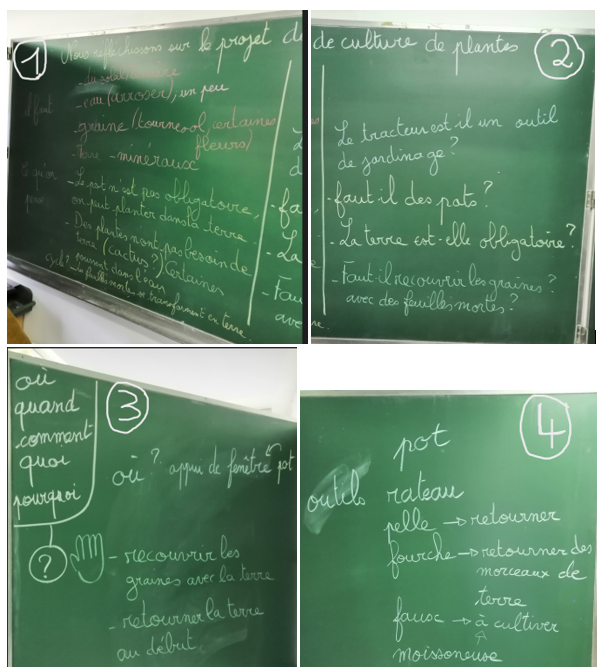 1
Nous réfléchissons sur le projet de
- du soleil, lumière
il faut
- eau (arroser), un peu
graine (tournesol, certaines
fleurs)
- Terre - minéraux
ce qu'on
pense
- Le pot n'est pas obligatoire,
on peut planter dans la terre.
- Des plantes n'ont pas besoin de
terre (cactus ?) Certaines
poussent dans l'eau
cycle : Les feuilles mortes se transforment en terre.
- fa
- La
- Fau
ave
de culture de plantes
2
Le tracteur est-il un outil
de jardinage ?
- faut-il des pots ?
- La terre est-elle obligatoire ?
- Faut-il recouvrir les graines ?
avec des feuilles mortes ?
re.
où
quand
comment
quoi
pourquoi
?
3
où ? appui de fenêtre pot
- recouvrir les
graines avec la terre
- retourner la terre
au début
4
pot
outils rateau
pelle → retourner
fourche → retourner des
morceaux de
terre
faux → à cultiver
moissoneuse